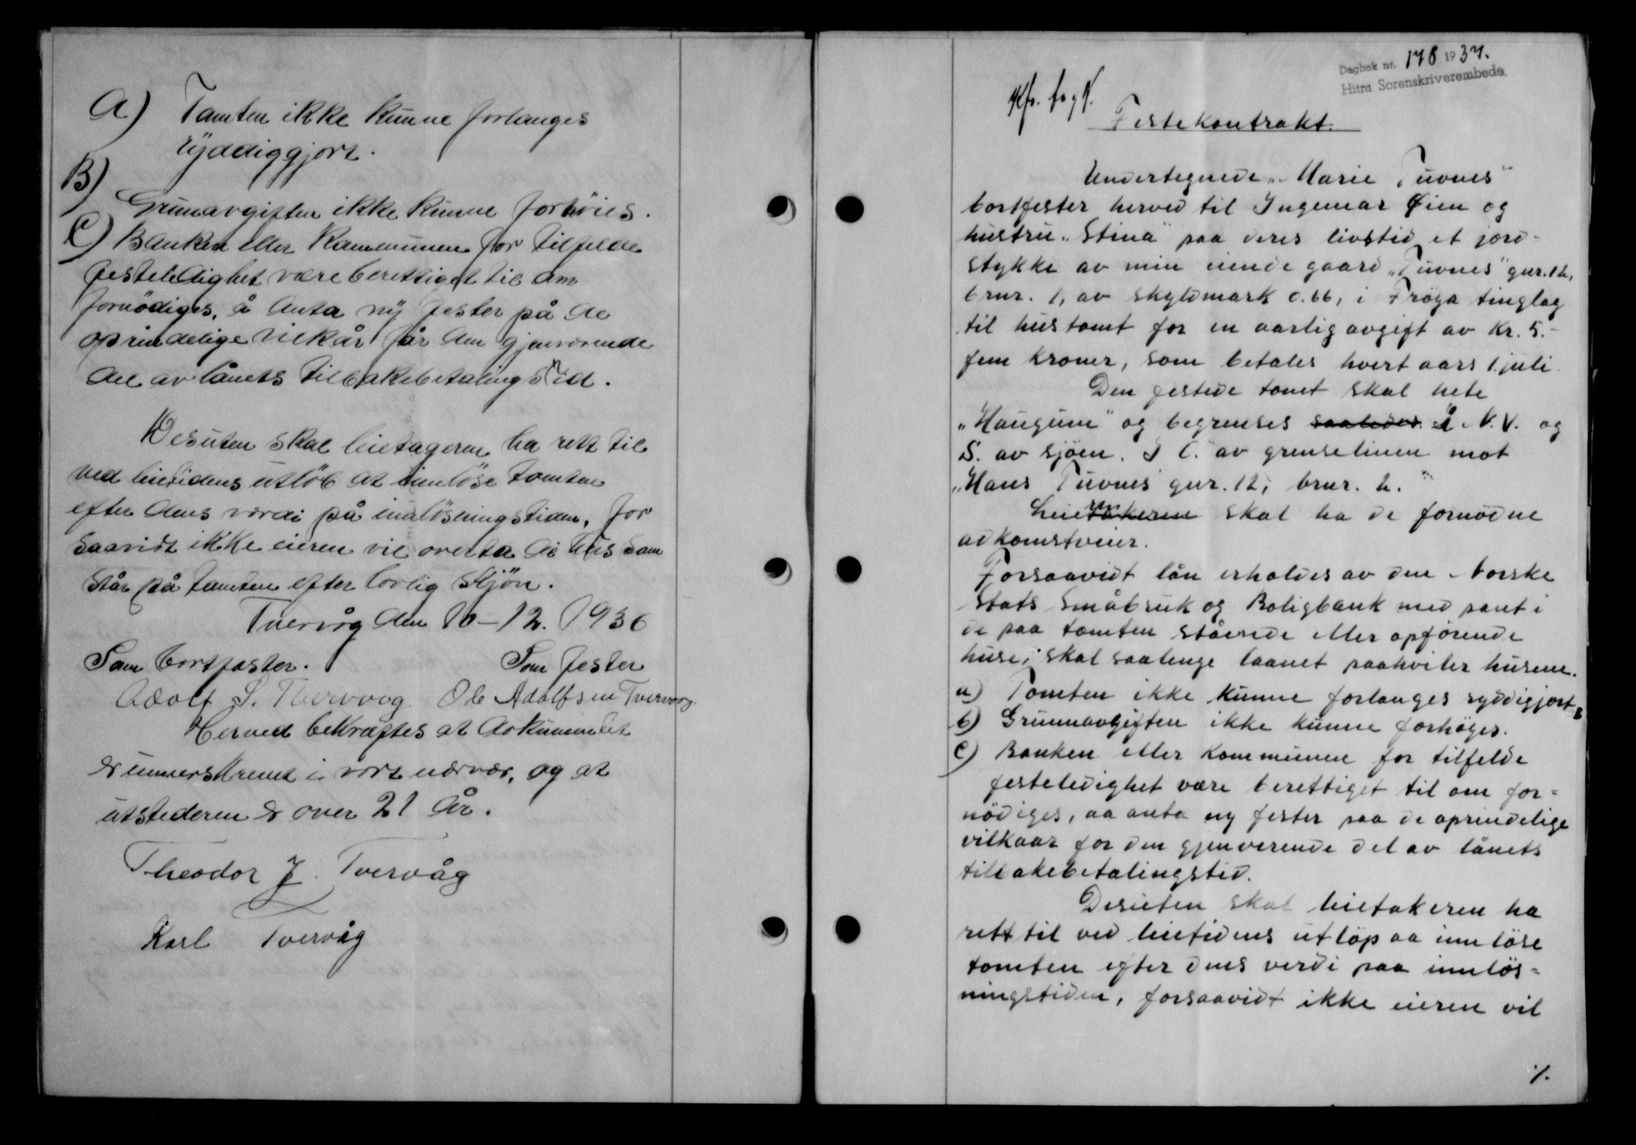 A) Tomten ikke kunne forlanges
ryddiggjort.
B)
Grunavgiften ikke kunne forhöies.
C) Banken eller Kommunen for tilfelde
festeledighet være berettiget til om
fornödiges, å anta ny fester på de
oprindelige vilkår for den gjenværende
del av lånets tilbakebetalingstid.
Desuten skal leietageren ha rett til
ved leietidens utlöb at innlöse tomten
efter dens værdi på innlösningstiden, for
saavidt ikke eieren vil overta de hus som
står på tomten efter lovlig skjön.
Tvervåg den 16-12. 1936
Som bortfester. Som fester
Adolf S. Thervaag Ole Adolfsen Tvervaag
Herved bekræftes at dokumentet
er underskrevet i vort nærvær, og at
utstederen er over 21 år.
Theodor J. Tvervåg
Karl Tvervåg
Dagbok nr. 178 1937.
Hitra Sorenskriverembede.
Festekontrakt.
Undertegnede „Marie Tuvnes"
bortfester herved til Ingemar Øien og
hustru „Stina" paa deres livstid et jord-
stykke av min eiende gaard „Tuvnes" gnr. 12,
brnr. 1, av skyldmark 0.66, i Frøya tinglag
til hustomt for en aarlig avgift av Kr. 5.-
fem kroner, som betales hvert aars 1 juli.
Den festede tomt skal hete
„Haugum" og begrenses saaledes I N.V. og
S. av sjöen. I Ö. av grenselinen mot
„Hans Tuvnes gnr. 12, brnr. 2."
Leietakeren skal ha de fornødne
adkomstveier.
Forsaavidt lån erholdes av den Norske
Stats Småbruk og Boligbank med pant i
de paa tomten stående eller opførende
huse, skal saalenge laanet paahviler husene.
a) Tomten ikke kunne forlanges ryddigjort,
b) Grunnavgiften ikke kunne forhøges.
C) Banken eller Kommunen for tilfelde
festeledighet være berettiget til om for=
nödiges, aa anta ny fester paa de oprindelige
vilkaar for den gjenverende del av lånets
tilbakebetalingstid.
Desuten skal leietakeren ha
rett til ved leietidens utlöp aa innlöse
tomten efter dens verdi paa innlös=
ningstiden, forsaavidt ikke eieren vil
%.